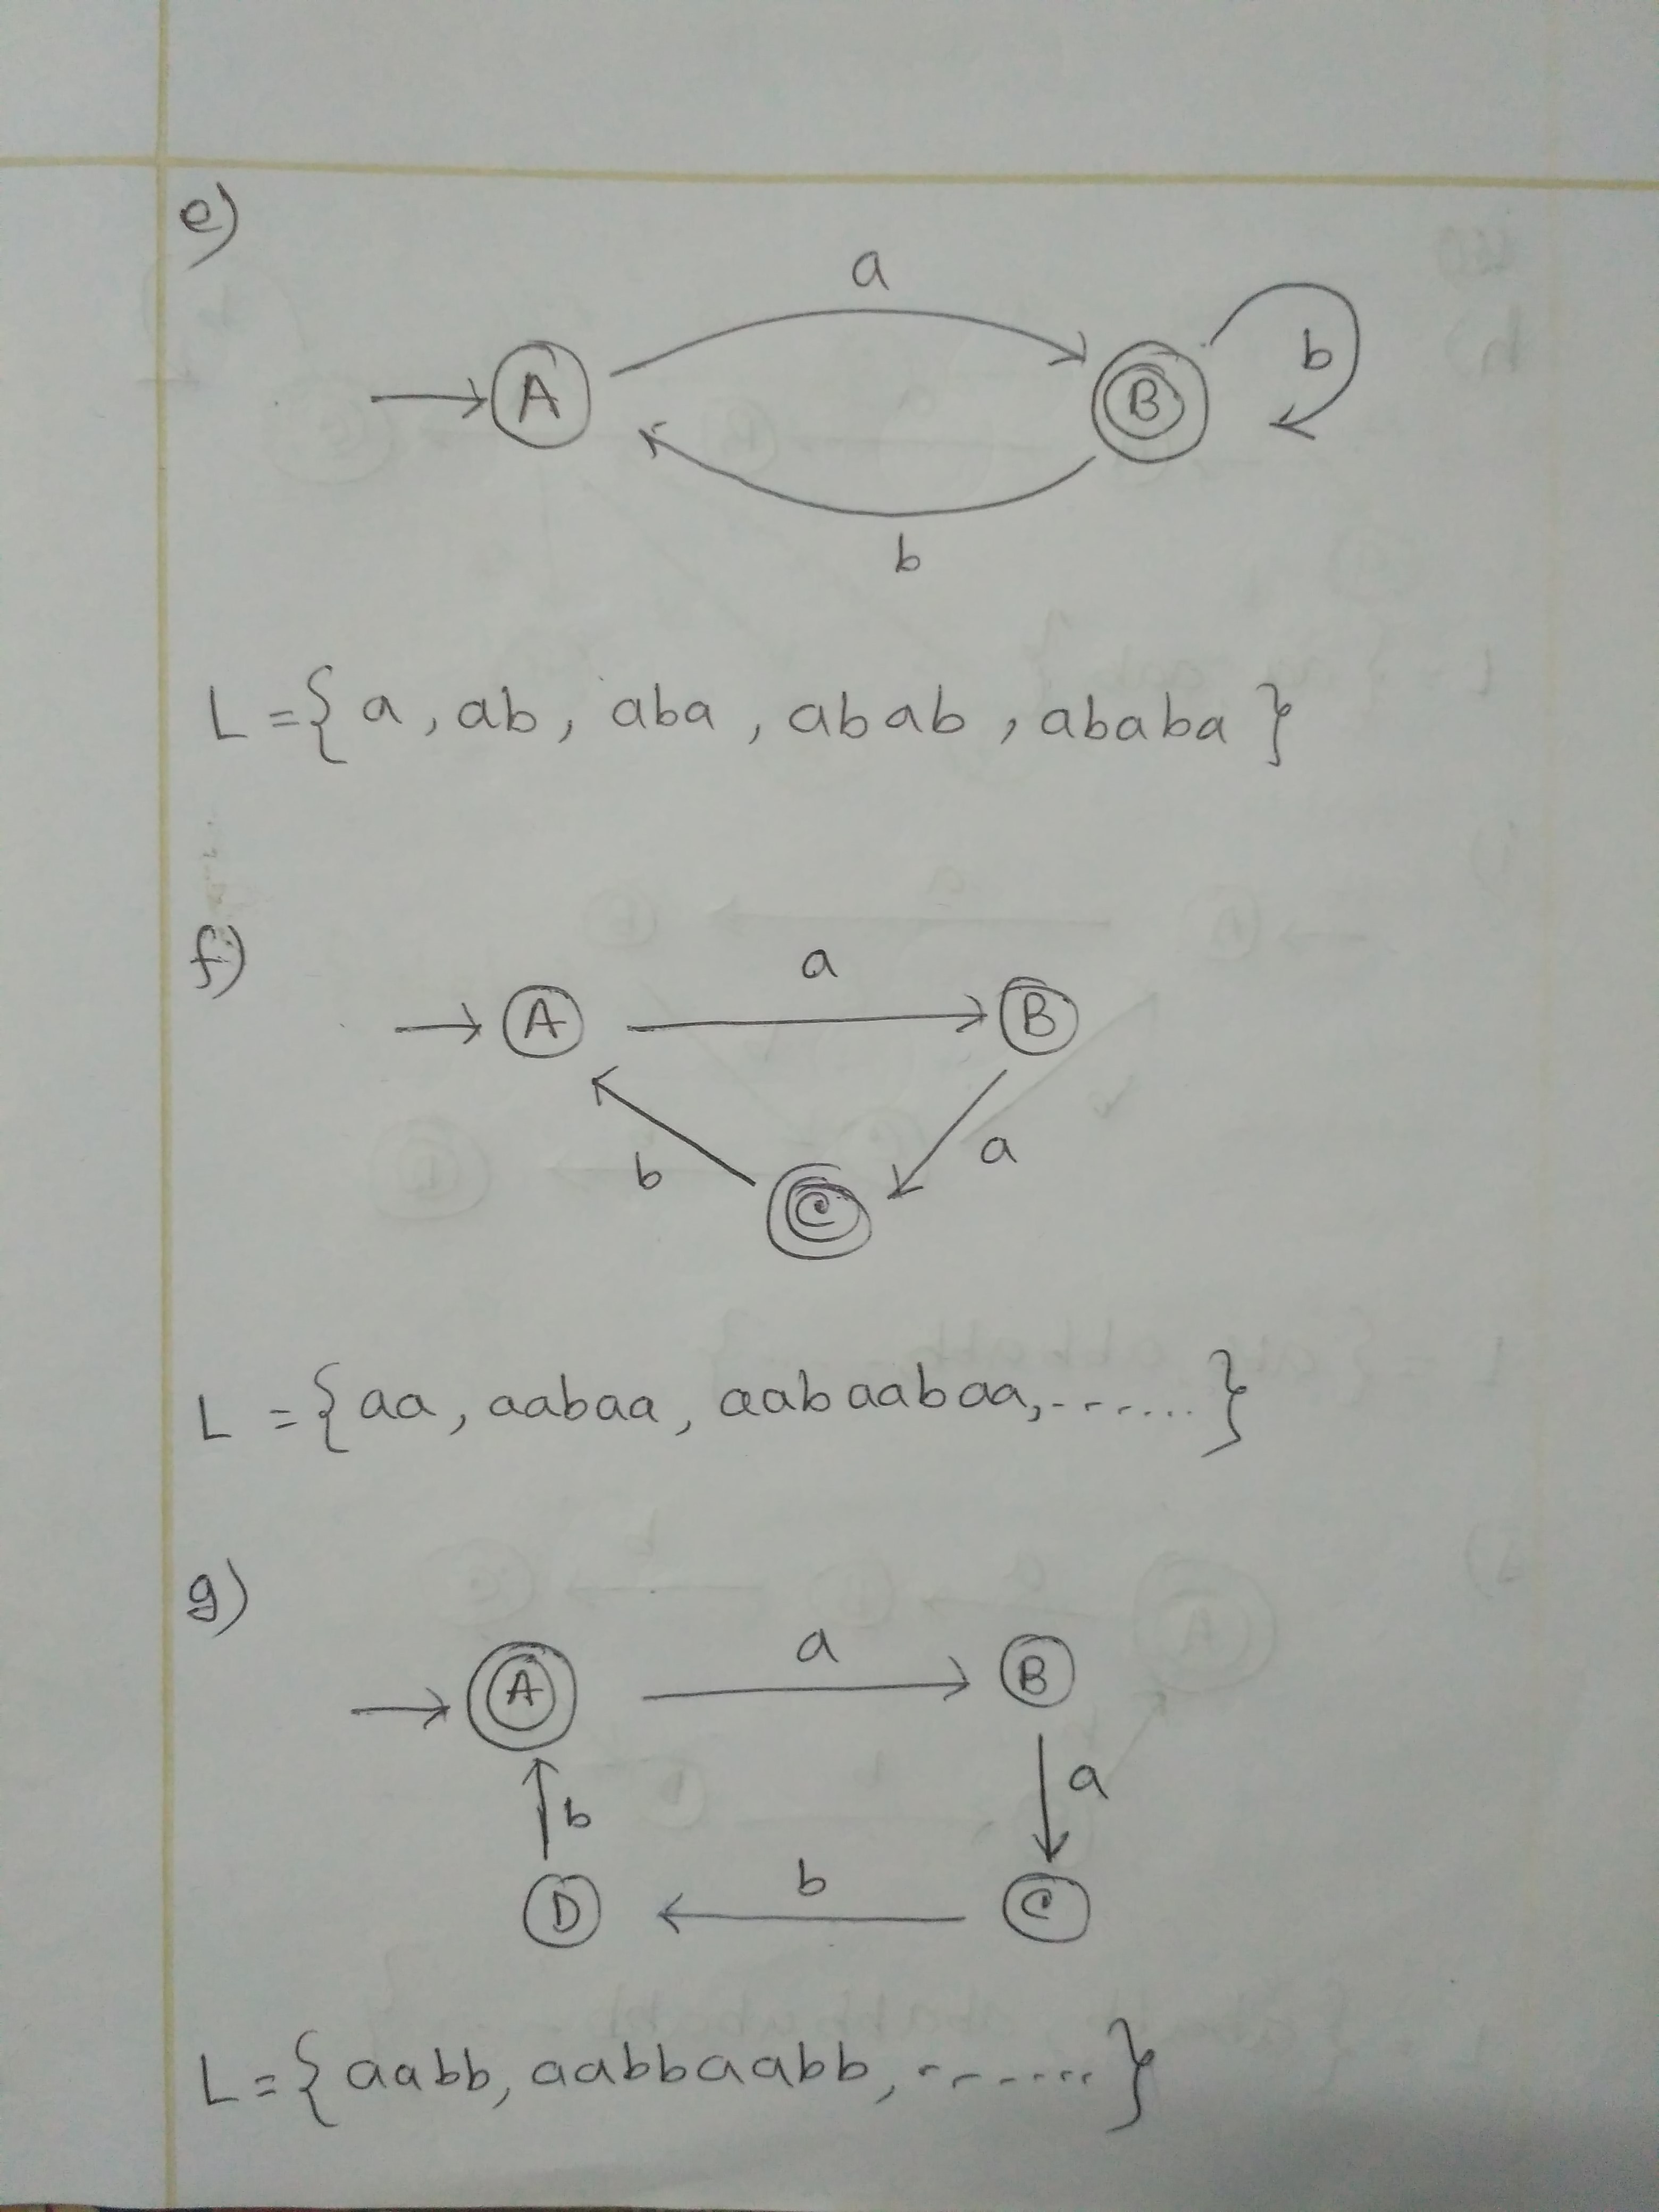 e)
a
A B b
b
L = { a , ab , aba , abab , ababa }
f)
a
A B
b a
C
L = { aa , aabaa , aabaabaa , ....... }
g)
a
A B
b a
b
D C
L = { aabb , aabbaabb , ....... }